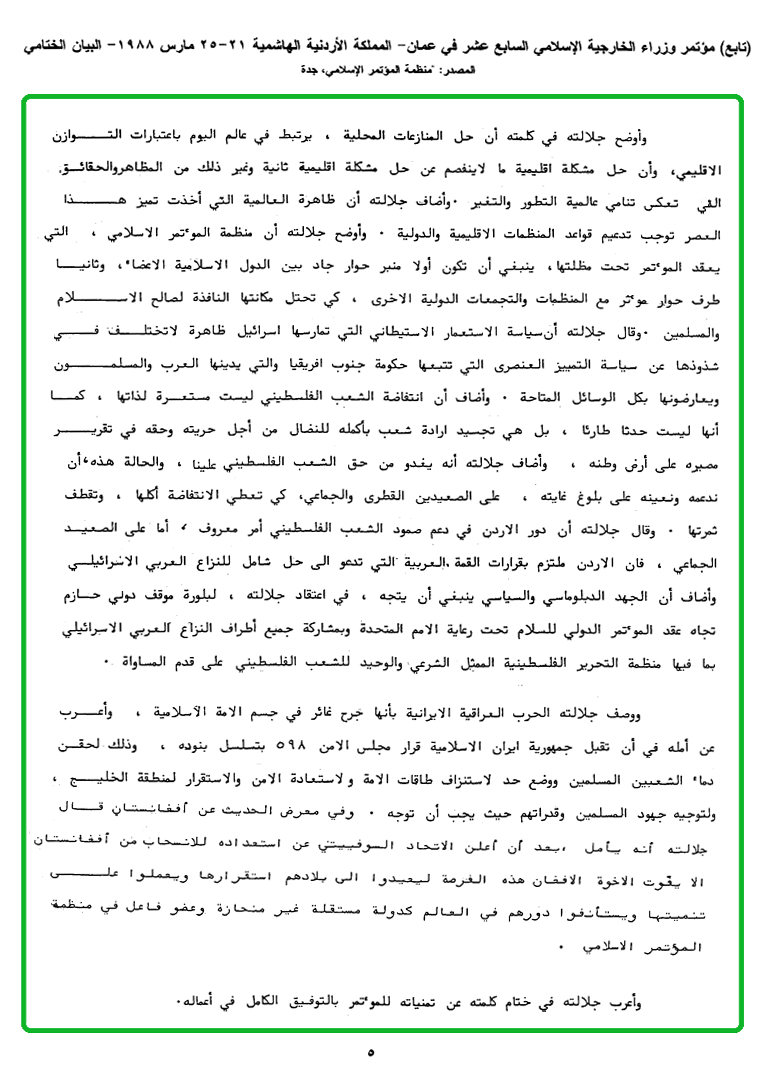 (تابع) مؤتمر وزراء الخارجية الإسلامي السابع عشر في عمان- المملكة الأردنية الهاشمية ٢١-٢٥ مارس ١٩٨٨- البيان الختامي
المصدر: "منظمة المؤتمر الإسلامي، جدة
وأوضح جلالته في كلمته أن حل المنازعات المحلية ، يرتبط في عالم اليوم باعتبارات التـــوازن
الاقليمي، وأن حل مشكلة اقليمية ما لاينفصم عن حل مشكلة اقليمية ثانية وغير ذلك من المظاهروالحقائـق.
التي تعكس تنامي عالمية التطور والتغير ٠وأضاف جلالته أن ظاهرة العالمية التي أخذت تميز هـــــذا
العصر توجب تدعيم قواعد المنظمات الاقليمية والدولية ٠ وأوضح جلالته أن منظمة الموءتمر الاسلامي ، التي
يعقد الموءتمر تحت مظلتها، ينبغي أن تكون أولا منبر حوار جاد بين الدول الاسلامية الاعضاء، وثانيــا
طرف حوار موءثر مع المنظمات والتجمعات الدولية الاخرى ، كي تحتل مكانتها النافذة لصالح الاســــلام
والمسلمين ٠وقال جلالته أن سياسة الاستعمار الاستيطاني التي تمارسها اسرائيل ظاهرة لاتختلــف فـــي
شذوذها عن سياسة التمييز العنصرى التي تتبعها حكومة جنوب افريقيا والتي يدينها العرب والمسلمــــون
ويعارضونها بكل الوسائل المتاحة ٠ وأضاف أن انتفاضة الشعب الفلسطيني ليست مستعرة لذاتها ، كمـــا
أنها ليست حدثا طارئا ، بل هي تجسيد ارادة شعب بأكمله للنضال من أجل حريته وحقه في تقريـــر
مصيره على أرض وطنه ، وأضاف جلالته أنه يغدو من حق الشعب الفلسطيني علينا ، والحالة هذه، أن
ندعمه ونعينه على بلوغ غايته ، على الصعيدين القطرى والجماعي، كي تعطي الانتفاضة أكلها ، وتقطف
ثمرتها ٠ وقال جلالته أن دور الاردن في دعم صمود الشعب الفلسطيني أمر معروف ، أما على الصعيــد
الجماعي ، فان الاردن ملتزم بقرارات القمة العربية التي تدعو الى حل شامل للنزاع العربي الاسرائيلــي
وأضاف أن الجهد الدبلوماسي والسياسي ينبغي أن يتجه ، في اعتقاد جلالته ، لبلورة موقف دولي حــازم
تجاه عقد الموءتمر الدولي للسلام تحت رعاية الامم المتحدة وبمشاركة جميع أطراف النزاع العربي الاسرائيلي
بما فيها منظمة التحرير الفلسطينية الممثل الشرعي والوحيد للشعب الفلسطيني على قدم المساواة ٠
ووصف جلالته الحرب العراقية الايرانية بأنها جرح غائر في جسم الامة الآسلامية ، وأعـــرب
عن أمله في أن تقبل جمهورية ايران الاسلامية قرار مجلس الامن ٥٩٨ بتسلسل بنوده ، وذلك لحقــن
دماء الشعبين المسلمين ووضع حد لاستنزاف طاقات الامة ولاستعادة الامن والاستقرار لمنطقة الخليــج ،
ولتوجيه جهود المسلمين وقدراتهم حيث يجب أن توجه ٠ وفي معرض الحديث عن أفغانستان قــــال
جلالته أنه يأمل ،بعد أن أعلن الاتحاد السوفييتي عن استعداده للانسحاب من أفغانستان
الا يفوت الاخوة الافغان هذه الفرصة ليعيدوا الى بلادهم استقرارها ويعملوا علـــــى
تنميتها ويستأنفوا دورهم في العالم كدولة مستقلة غير منحازة وعضو فاعل في منظمة
المؤتمر الاسلامي ٠
وأعرب جلالته في ختام كلمته عن تمنياته للموءتمر بالتوفيق الكامل في أعماله٠
٥